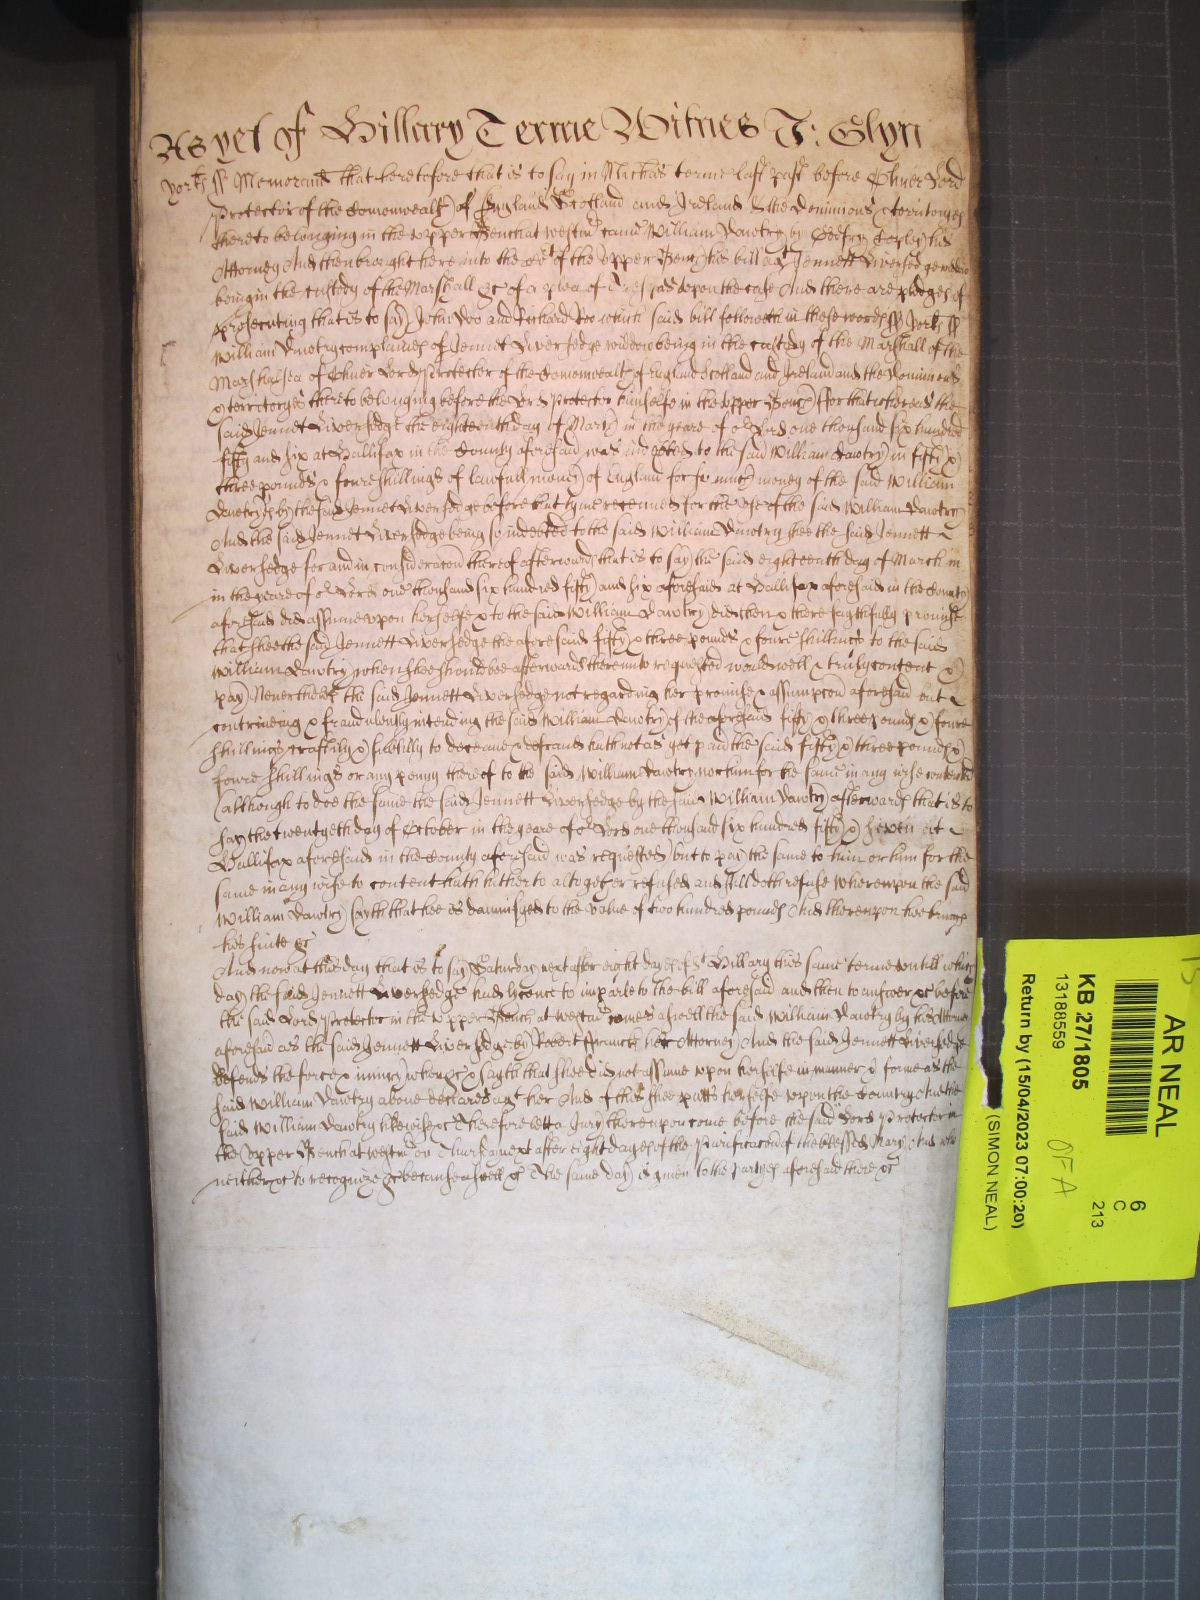 As yet of Hillary Terme Witnes J: Glyn
Yorks ss Memorand that heretofore that is to say in Michas terme last past before Oliver Lord
Protector of the Comonwealth of England Scotland and Ireland & the Dominions & territoryes
thereto belonging in the upper Bench at westmr came William Vawtry by Godfry Copley his
Attorney And then brought here into the Court of the upper Bench his bill agt Jennett Liversedge widdow
being in the custody of the Marshall &c of a plea of Trespas upon the case And there are pledges of
prosecuting that is to say John Doo and Richard Roo which said bill followeth in these words ss Yorks ss
William Vawtry complaines of Jennet Liversedge widdow being in the custody of the Marshall of the
Marshalsea of Oliver Lord Protector of the Comonwealth of England Scotland and Ireland and the Dominions
& territoryes thereto belonging before the Lord Protector himselfe in the upper Bench For that whereas the
said Jennet Liversedge the eighteenth day of March in the yeare of or Lord one thousand six hundred
fifty and six at Hallifax in the County aforesaid was indebted to the said William Vawtry in fifty &
three pounds & foure shillings of lawfull money of England for so much money of the said William
Vawtry by the said Jennet Liversedge before that tyme receaued for the use of the said William Vawtry
And the said Jennet Liversedge being so indebted to the said William Vawtry shee the said Jennett
Liversedge for and in consideracon thereof afterwards that is to say the said eighteenth day of March in
in the yeare of or Lord one thousand six hundred fifty and six aforesaid at Hallifax aforesaid in the County
aforesaid did assume upon herselfe & to the said William Vawtry did then & there faythfully promise
that shee the said Jennett Liversedge the aforesaid fifty & three pounds & foure shillings to the said
William Vawtry when shee should bee afterwards thereunto requested would well & truly content &
pay Neuertheles the said Jennett Liversedge not regarding her promise & assumpcon aforesaid but
contriueing & fraudulently intending the said William Vawtry of the aforesaid fifty & three pounds & foure
shillings craftily & subtilly to deceaue & defraud hath not as yet paid the said fifty & three pounds &
foure shillings or any penny thereof to the said William Vawtry nor him for the same in any wise contented
(although to doe the same the said Jennett Liversedge by the said William Vawtry afterwards that is to
say the twentyeth day of October in the yeare of or Lord one thousand six hundred fifty & seven at
Hallifax aforesaid in the County aforesaid was requested) but to pay the same to him or him for the
same in any wise to content hath hitherto altogether refused and still doth refuse whereupon the said
William Vawtry sayth that hee is damnifyed to the value of two hundred pounds And thereupon hee brings
his suite &c
And now at this day that is to say Saturday next after eight dayes of St Hillary this same terme untill which
day the said Jennett Liversedge had lycence to imparle to the bill aforesaid and then to answer &c before
the said Lord Protector in the upper Bench at westmr comes aswell the said William Vawtry by his Attorney
aforesaid as the said Jennett Liversedge by Robert Franck her Attorney And the said Jennett Liversedge
defends the force & iniury when &c & sayth that shee did not assume upon herselfe in manner & forme as the
said William Vawtry aboue declares agt her And of this shee putts herselfe upon the Country And the
said William Vawtry likewise &c Therefore lett a Jury thereupon come before the said Lord Protector in
the upper Bench at westmr on Thursday next after eight dayes of the Purificacon of the blessed Mary And who
neither &c to recognize &c because aswell &c The same day is giuen to the partyes aforesaid there &c
AR NEAL
6
C
213
KB 27/1805
13188559
OFA
Return by (15/04/2023 07:00:20)
(SIMON NEAL)